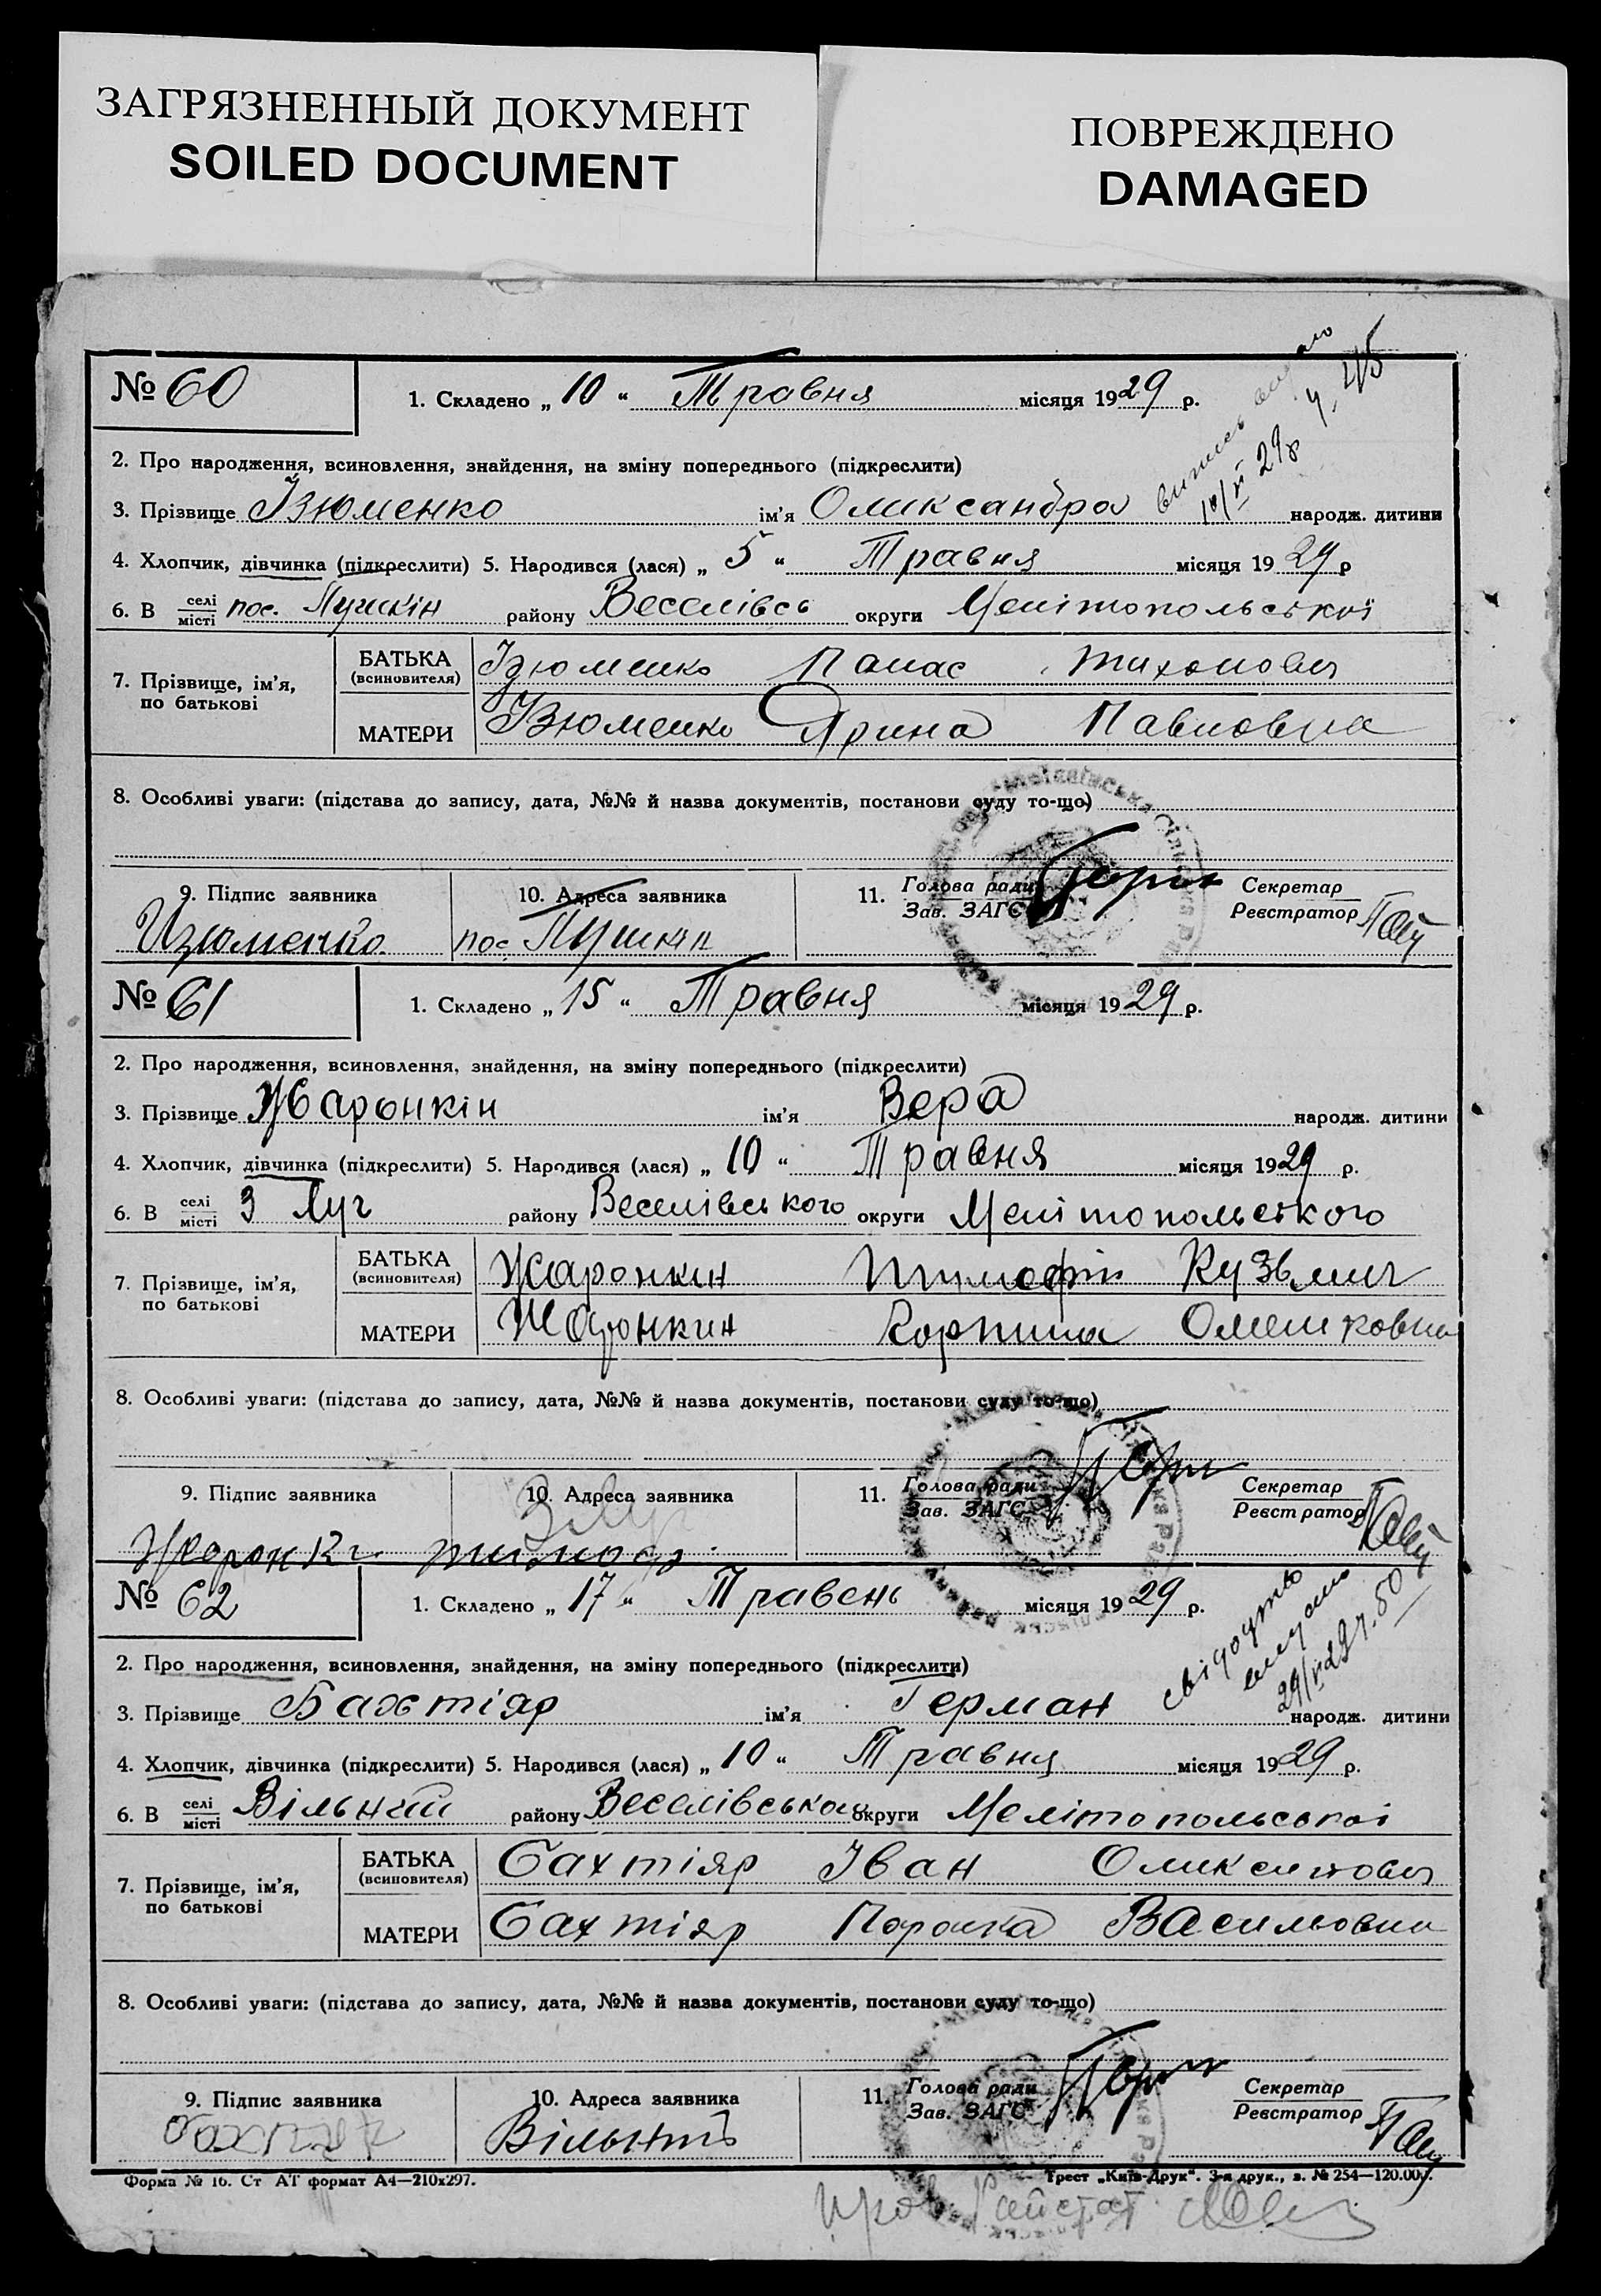 ЗАГРЯЗНЕННЫЙ ДОКУМЕНТ
SOILED DOCUMENT
ПОВРЕЖДЕНО
DAMAGED
№ 60 1. Складено „ 10 “ Травня місяця 1929 р.
2. Про народження, всиновлення, знайдення, на зміну попереднього (підкреслити)
3. Прізвище Ізюменко ім'я Олександра народж. дитини
4. Хлопчик, дівчинка (підкреслити) 5. Народився (лася) „ 5 “ Травня місяця 1929 р
6. В селі місті пос. Пушкін району Веселівсь округи Мелітопольської
7. Прізвище, ім'я, по батькові
БАТЬКА (всиновителя) Ізюменко Панас Тихонович
МАТЕРИ Ізюменко Ярина Павловна
8. Особливі уваги: (підстава до запису, дата, №№ й назва документів, постанови суду то-що)
9. Підпис заявника 10. Адреса заявника 11. Голова ради Зав. ЗАГС Секретар Реєстратор
Изюменко. пос. Пушкін
№ 61 1. Складено „ 15 “ Травня місяця 1929 р.
2. Про народження, всиновлення, знайдення, на зміну попереднього (підкреслити)
3. Прізвище Жаронкін ім'я Вера народж. дитини
4. Хлопчик, дівчинка (підкреслити) 5. Народився (лася) „ 10 “ Травня місяця 1929 р.
6. В селі місті З Луг району Веселівського округи Мелітопольського
7. Прізвище, ім'я, по батькові
БАТЬКА (всиновителя) Жаронкин Тимофій Кузьмич
МАТЕРИ Жаронкин
8. Особливі уваги: (підстава до запису, дата, №№ й назва документів, постанови суду то-що)
9. Підпис заявника 10. Адреса заявника 11. Голова ради Зав. ЗАГС Секретар Реєстратор
№ 62 1. Складено „ 17 “ Травень місяця 1929 р.
2. Про народження, всиновлення, знайдення, на зміну попереднього (підкреслити)
3. Прізвище Бахтіяр ім'я Герман народж. дитини
4. Хлопчик, дівчинка (підкреслити) 5. Народився (лася) „ 10 “ Травня місяця 1929 р.
6. В селі місті Вільний району Веселівського округи Мелітопольської
7. Прізвище, ім'я, по батькові
БАТЬКА (всиновителя) Бахтіяр Іван
МАТЕРИ Бахтіяр Параска Василовна
8. Особливі уваги: (підстава до запису, дата, №№ й назва документів, постанови суду то-що)
9. Підпис заявника 10. Адреса заявника 11. Голова ради Зав. ЗАГС Секретар Реєстратор
Форма № 16. Ст АТ формат А4—210х297. Трест „Київ-Друк“. 3-я друк., з. № 254—120.000.